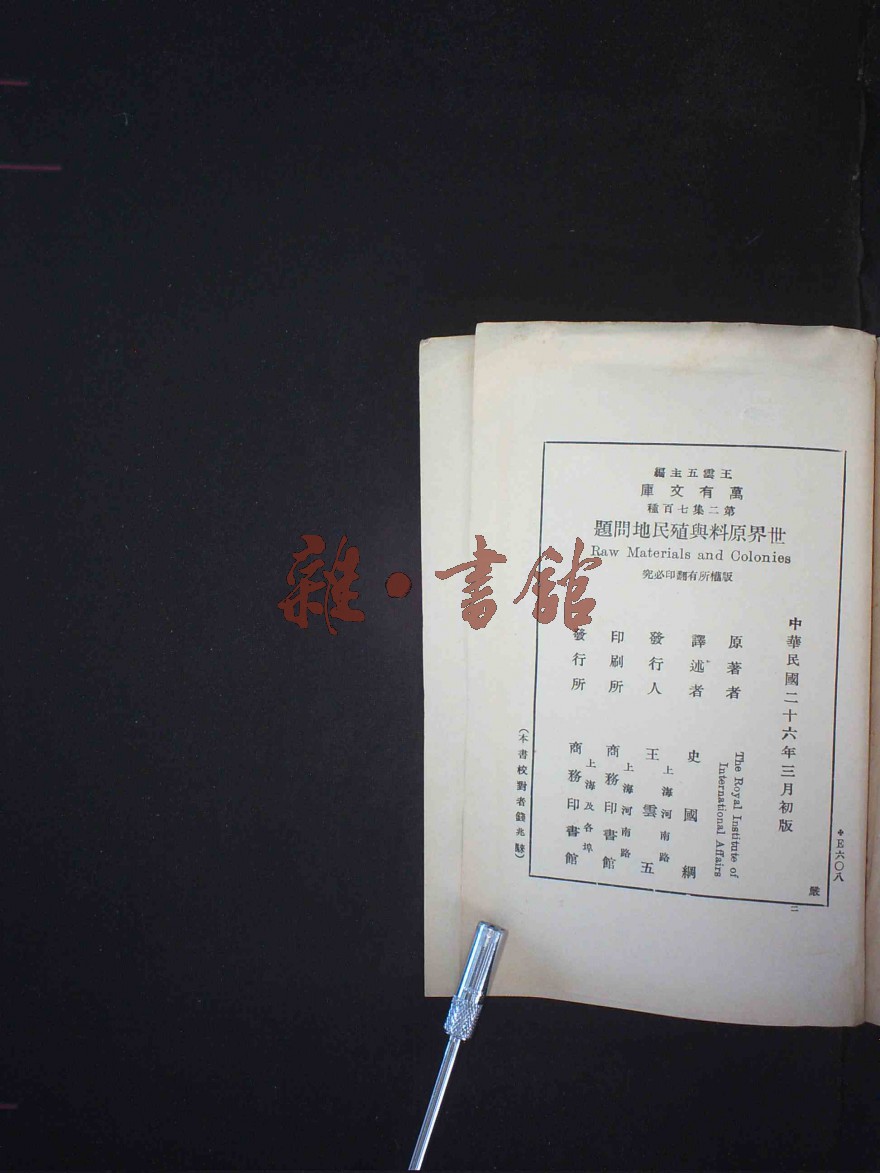 王雲五主編
萬有文庫
第二集七百種
世界原料與殖民地問題
Raw Materials and Colonies
版權所有翻印必究
中華民國二十六年三月初版
原著者 The Royal Institute of International Affairs
譯述者 史國綱
發行人 王雲五
上海河南路
印刷所 商務印書館
上海河南路
發行所 商務印書館
上海及各埠
(本書校對者錢兆騤)
E六〇八
嚴
二
雜·書館